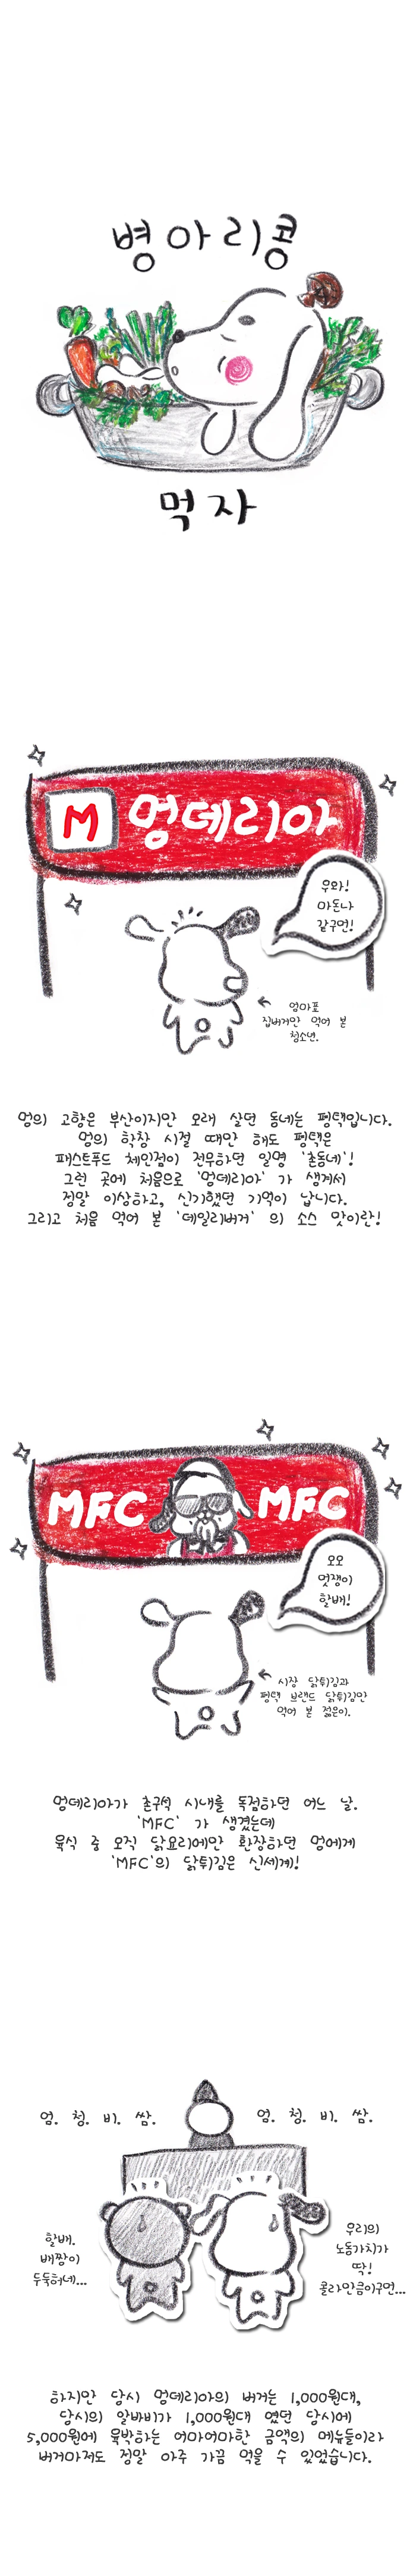 병아리콩
먹자
M 멍데리아
우와!
마돈나
같구먼!
엄마표
집버거만 먹어 본
청소년.
멍의 고향은 부산이지만 오래 살던 동네는 평택입니다.
멍의 학창 시절 때만 해도 평택은
패스트푸드 체인점이 전무하던 일명 '촌동네'!
그런 곳에 처음으로 '멍데리아' 가 생겨서
정말 이상하고, 신기했던 기억이 납니다.
그리고 처음 먹어 본 '데일리버거' 의 소스 맛이란!
MFC MFC
오오
멋쟁이
할배!
시장 닭튀김과
평택 브랜드 닭튀김만
먹어 본 젊은이.
멍데리아가 촌구석 시내를 독점하던 어느 날.
'MFC' 가 생겼는데
육식 중 오직 닭요리에만 환장하던 멍에게
'MFC'의 닭튀김은 신세계!
엄. 청. 비. 쌈.
엄. 청. 비. 쌈.
할배.
배짱이
두둑허네...
우리의
노동가치가
딱!
콜라만큼이구먼...
하지만 당시 멍데리아의 버거는 1,000원대,
당시의 알바비가 1,000원대 였던 당시에
5,000원에 육박하는 어마어마한 금액의 메뉴들이라
버거마저도 정말 아주 가끔 먹을 수 있었습니다.